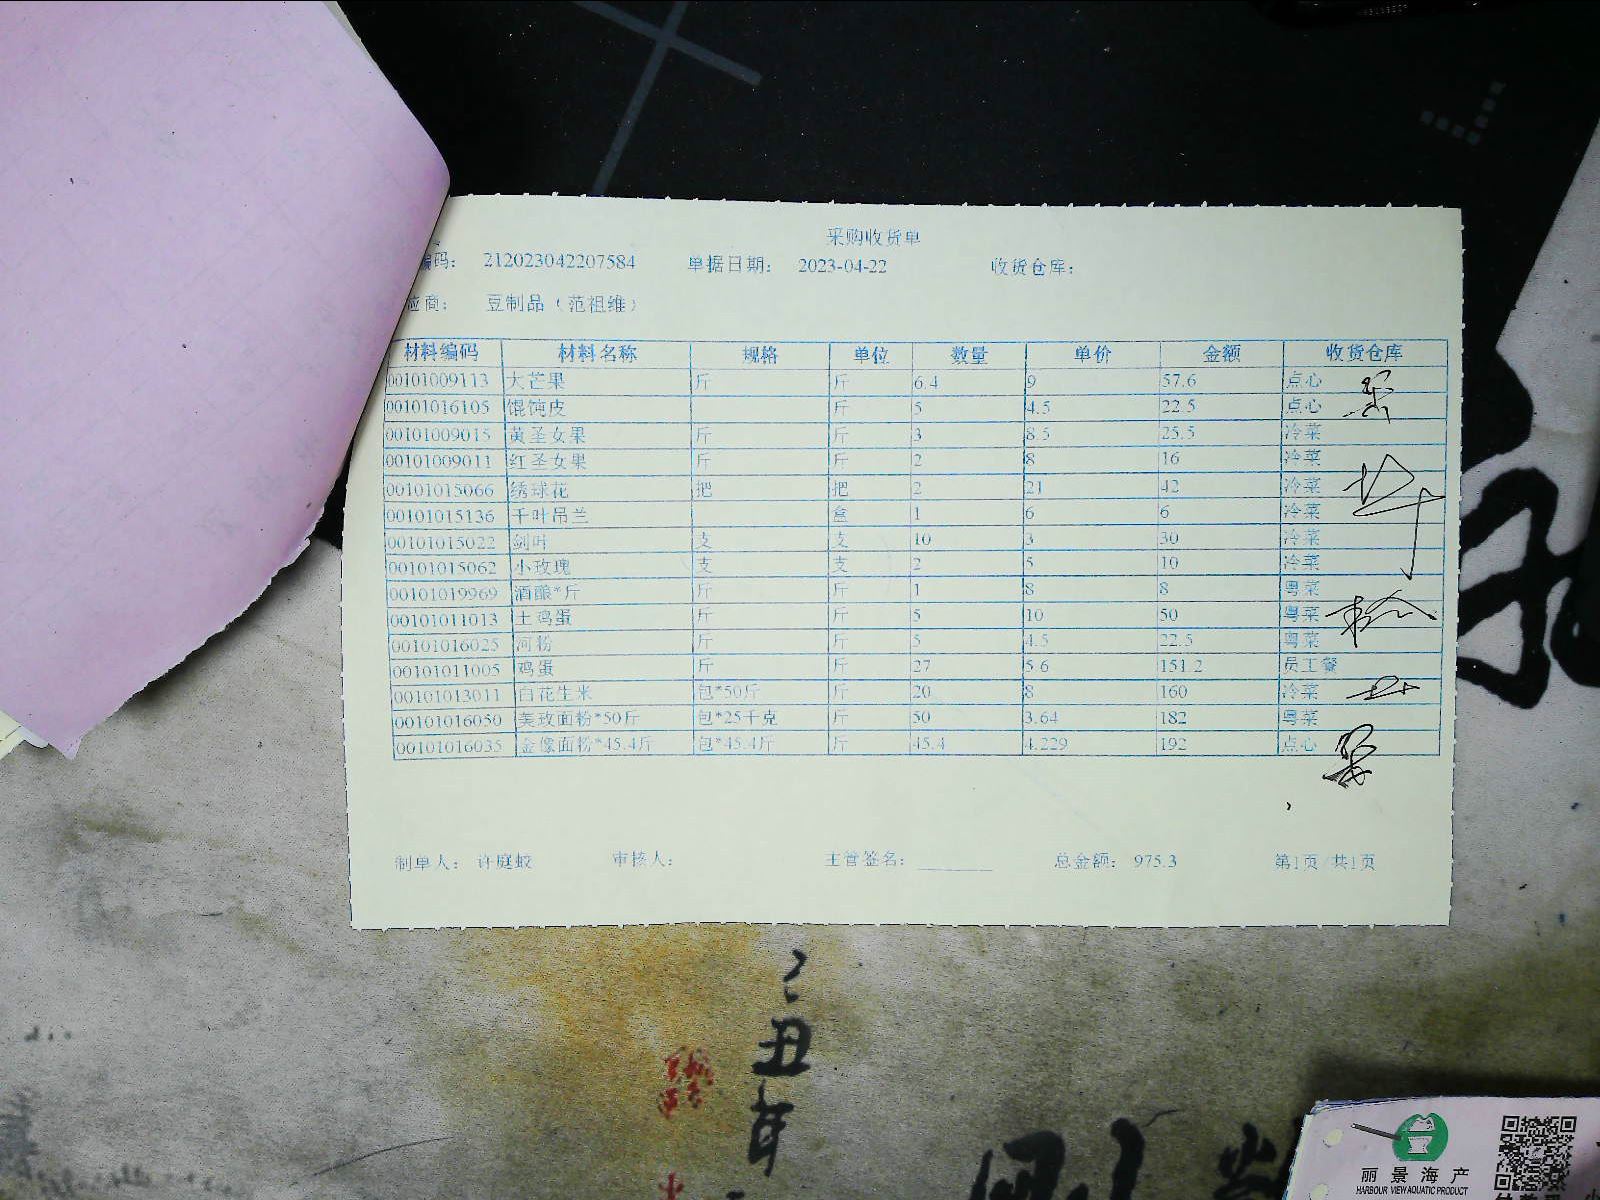 采购收货单
编码： 212023042207584 单据日期： 2023-04-22 收货仓库：
应商： 豆制品（范祖维）
材料编码 材料名称 规格 单位 数量 单价 金额 收货仓库
00101009113 大芒果 斤 斤 6.4 9 57.6 点心
00101016105 馄饨皮 斤 5 4.5 22.5 点心
00101009015 黄圣女果 斤 斤 3 8.5 25.5 冷菜
00101009011 红圣女果 斤 斤 2 8 16 冷菜
00101015066 绣球花 把 把 2 21 42 冷菜
00101015136 千叶吊兰 盒 1 6 6 冷菜
00101015022 剑叶 支 支 10 3 30 冷菜
00101015062 小玫瑰 支 支 2 5 10 冷菜
00101019969 酒酿*斤 斤 斤 1 8 8 粤菜
00101011013 土鸡蛋 斤 斤 5 10 50 粤菜
00101016025 河粉 斤 斤 5 4.5 22.5 粤菜
00101011005 鸡蛋 斤 斤 27 5.6 151.2 员工餐
00101013011 白花生米 包*50斤 斤 20 8 160 冷菜
00101016050 美玫面粉*50斤 包*25千克 斤 50 3.64 182 粤菜
00101016035 金像面粉*45.4斤 包*45.4斤 斤 45.4 4.229 192 点心
制单人： 许庭蛟 审核人： 主管签名： 总金额： 975.3 第1页/共1页
丑年
丽景海产
HARBOUR VIEW AQUATIC PRODUCT